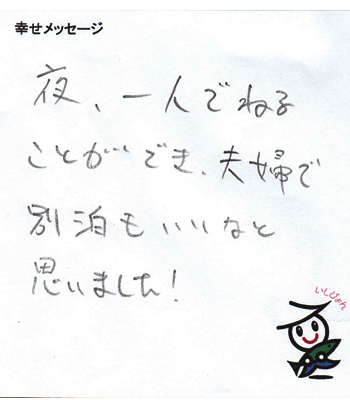 幸せメッセージ
夜、一人でねる
ことができ、夫婦で
別泊もいいなと
思いました!
いしぴょん